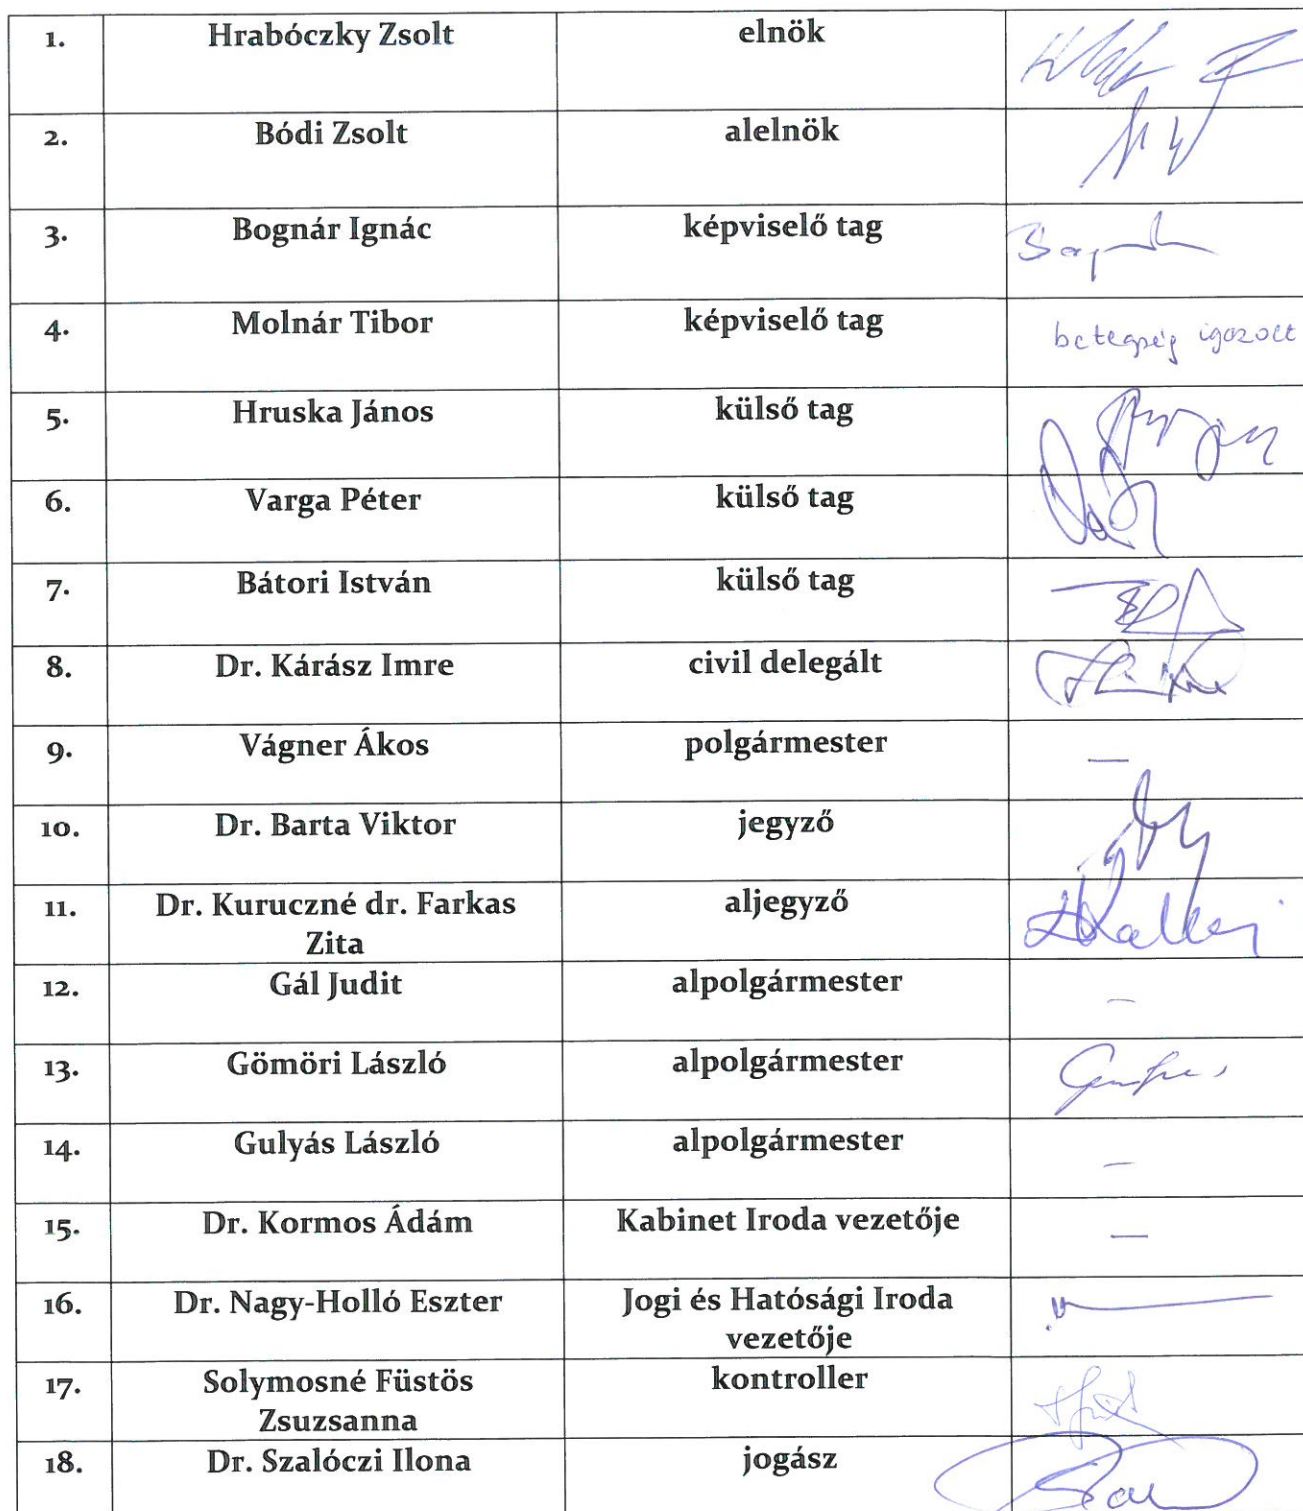 1. Hrabóczky Zsolt elnök
2. Bódi Zsolt alelnök
3. Bognár Ignác képviselő tag
4. Molnár Tibor képviselő tag betegség igazolt
5. Hruska János külső tag
6. Varga Péter külső tag
7. Bátori István külső tag
8. Dr. Kárász Imre civil delegált
9. Vágner Ákos polgármester —
10. Dr. Barta Viktor jegyző
11. Dr. Kuruczné dr. Farkas aljegyző
Zita
12. Gál Judit alpolgármester –
13. Gömöri László alpolgármester
14. Gulyás László alpolgármester –
15. Dr. Kormos Ádám Kabinet Iroda vezetője —
16. Dr. Nagy-Holló Eszter Jogi és Hatósági Iroda
vezetője
17. Solymosné Füstös kontroller
Zsuzsanna
18. Dr. Szalóczi Ilona jogász